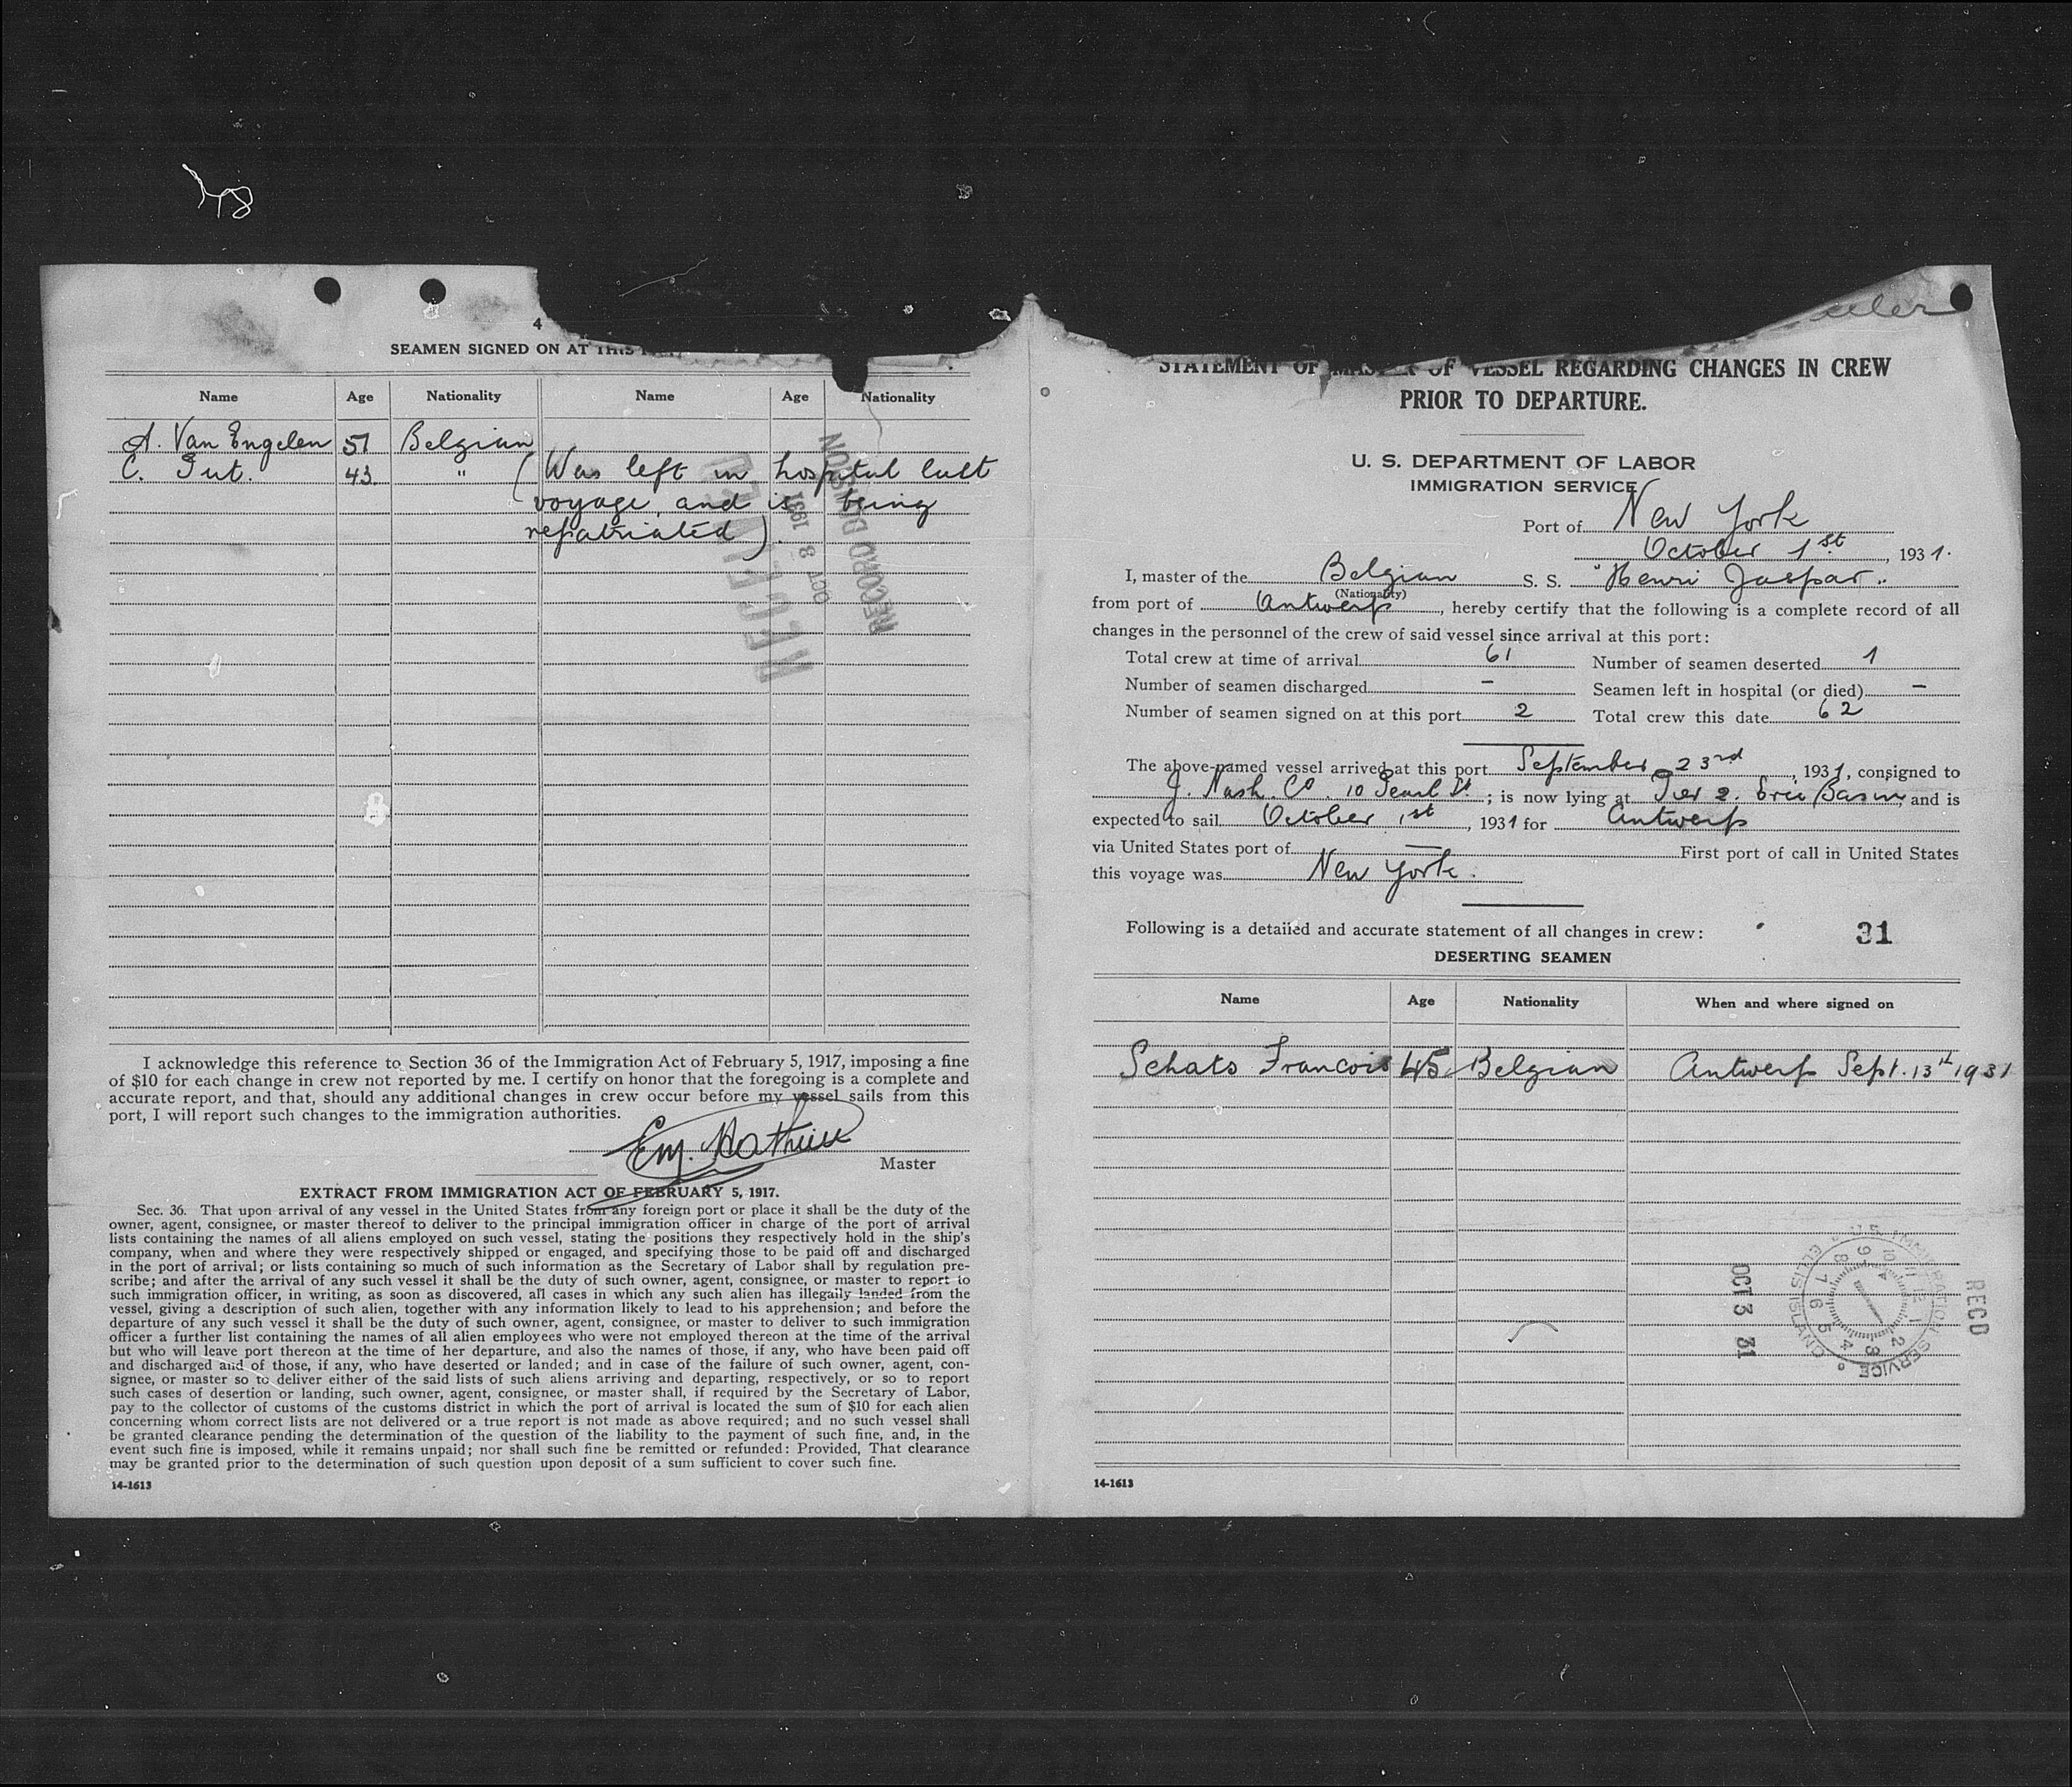 48
4
SEAMEN SIGNED ON AT THIS
Name Age Nationality Name Age Nationality
A. Van Engelen 51 Belgian
C. Put. 43. " (Was left in hospital last
voyage, and is being
repatriated).
RECEIVED
OCT 8 1931
RECORD DIVISION
I acknowledge this reference to Section 36 of the Immigration Act of February 5, 1917, imposing a fine
of $10 for each change in crew not reported by me. I certify on honor that the foregoing is a complete and
accurate report, and that, should any additional changes in crew occur before my vessel sails from this
port, I will report such changes to the immigration authorities.
Em. Mathieu
Master
EXTRACT FROM IMMIGRATION ACT OF FEBRUARY 5, 1917.
Sec. 36. That upon arrival of any vessel in the United States from any foreign port or place it shall be the duty of the
owner, agent, consignee, or master thereof to deliver to the principal immigration officer in charge of the port of arrival
lists containing the names of all aliens employed on such vessel, stating the positions they respectively hold in the ship's
company, when and where they were respectively shipped or engaged, and specifying those to be paid off and discharged
in the port of arrival; or lists containing so much of such information as the Secretary of Labor shall by regulation pre-
scribe; and after the arrival of any such vessel it shall be the duty of such owner, agent, consignee, or master to report to
such immigration officer, in writing, as soon as discovered, all cases in which any such alien has illegally landed from the
vessel, giving a description of such alien, together with any information likely to lead to his apprehension; and before the
departure of any such vessel it shall be the duty of such owner, agent, consignee, or master to deliver to such immigration
officer a further list containing the names of all alien employees who were not employed thereon at the time of the arrival
but who will leave port thereon at the time of her departure, and also the names of those, if any, who have been paid off
and discharged and of those, if any, who have deserted or landed; and in case of the failure of such owner, agent, con-
signee, or master so to deliver either of the said lists of such aliens arriving and departing, respectively, or so to report
such cases of desertion or landing, such owner, agent, consignee, or master shall, if required by the Secretary of Labor,
pay to the collector of customs of the customs district in which the port of arrival is located the sum of $10 for each alien
concerning whom correct lists are not delivered or a true report is not made as above required; and no such vessel shall
be granted clearance pending the determination of the question of the liability to the payment of such fine, and, in the
event such fine is imposed, while it remains unpaid; nor shall such fine be remitted or refunded: Provided, That clearance
may be granted prior to the determination of such question upon deposit of a sum sufficient to cover such fine.
14-1613
STATEMENT OF MASTER OF VESSEL REGARDING CHANGES IN CREW
PRIOR TO DEPARTURE.
U. S. DEPARTMENT OF LABOR
IMMIGRATION SERVICE
Port of New York
October 1st, 1931.
I, master of the Belgian S. S. "Henri Jaspar"
(Nationality)
from port of Antwerp, hereby certify that the following is a complete record of all
changes in the personnel of the crew of said vessel since arrival at this port:
Total crew at time of arrival 61 Number of seamen deserted 1
Number of seamen discharged - Seamen left in hospital (or died) -
Number of seamen signed on at this port 2 Total crew this date 62
The above-named vessel arrived at this port September 23rd, 1931, consigned to
J. Nash. Co. 10 Pearl St.; is now lying at Pier 2. Erie Basin, and is
expected to sail October 1st, 1931 for Antwerp
via United States port of — First port of call in United States
this voyage was New York.
Following is a detailed and accurate statement of all changes in crew: 31
DESERTING SEAMEN
Name Age Nationality When and where signed on
Schats Francois 45 Belgian Antwerp Sept. 13th 1931
RECD
U.S. IMMIGRATION SERVICE
ELLIS ISLAND
1 2 3 4 5 6 7 8 9 10 11 12
OCT 3 31
14-1613